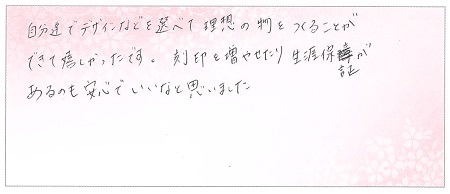 自分達でデザインなどを選べて理想の物をつくることが
できて嬉しかったです。刻印を増やせたり生涯保証が
あるのも安心でいいなと思いました